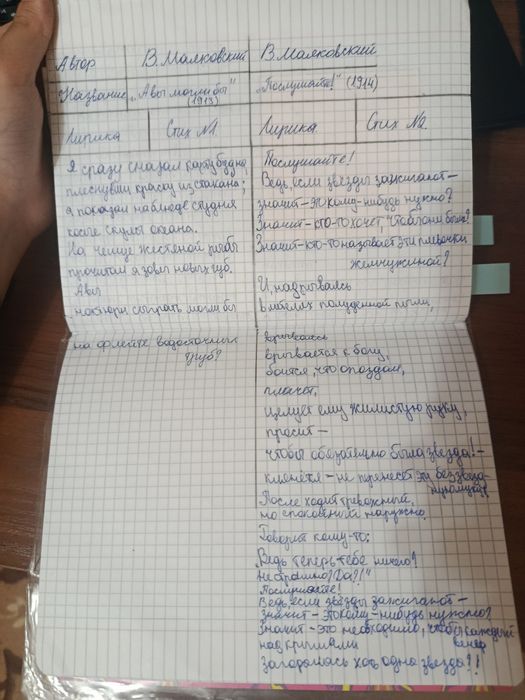 Автор В. Маяковский В. Маяковский
Название „А вы могли бы" (1913) „Послушайте!" (1914)
Лирика Стих №1. Лирика Стих №2.
Я сразу смазал карту будня,
плеснувши краску из стакана;
я показал на блюде студня
косые скулы океана.
На чешуе жестяной рыбы
прочитал я зовы новых губ.
А вы
ноктюрн сыграть могли бы
на флейте водосточных
труб?
Послушайте!
Ведь, если звёзды зажигают –
значит – это кому-нибудь нужно?
Значит – кто-то хочет, чтобы они были?
Значит – кто-то называет эти плевочки
жемчужиной?
И, надрываясь
в метелях полуденной пыли,
врывается к богу,
боится, что опоздал,
плачет,
целует ему жилистую руку,
просит –
чтобы обязательно была звезда! –
клянётся – не перенесёт эту беззвездную
муку!
После ходит тревожный,
но спокойный наружно.
Говорит кому-то:
„Ведь теперь тебе ничего?
Не страшно? Да?!"
Послушайте!
Ведь, если звёзды зажигают –
значит – это кому-нибудь нужно?
Значит – это необходимо, чтобы каждый
вечер
над крышами
загоралась хоть одна звезда?!